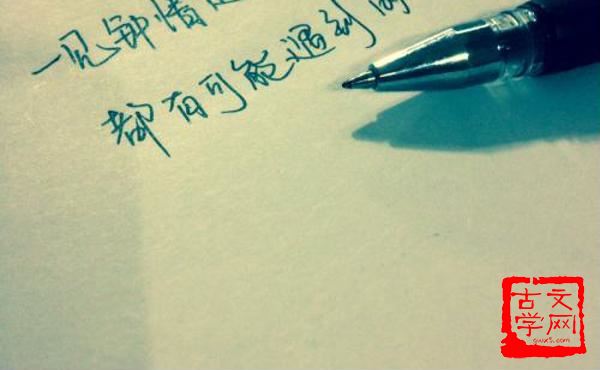 一见钟情
都有可能遇到
古文
学网
gwx5.com